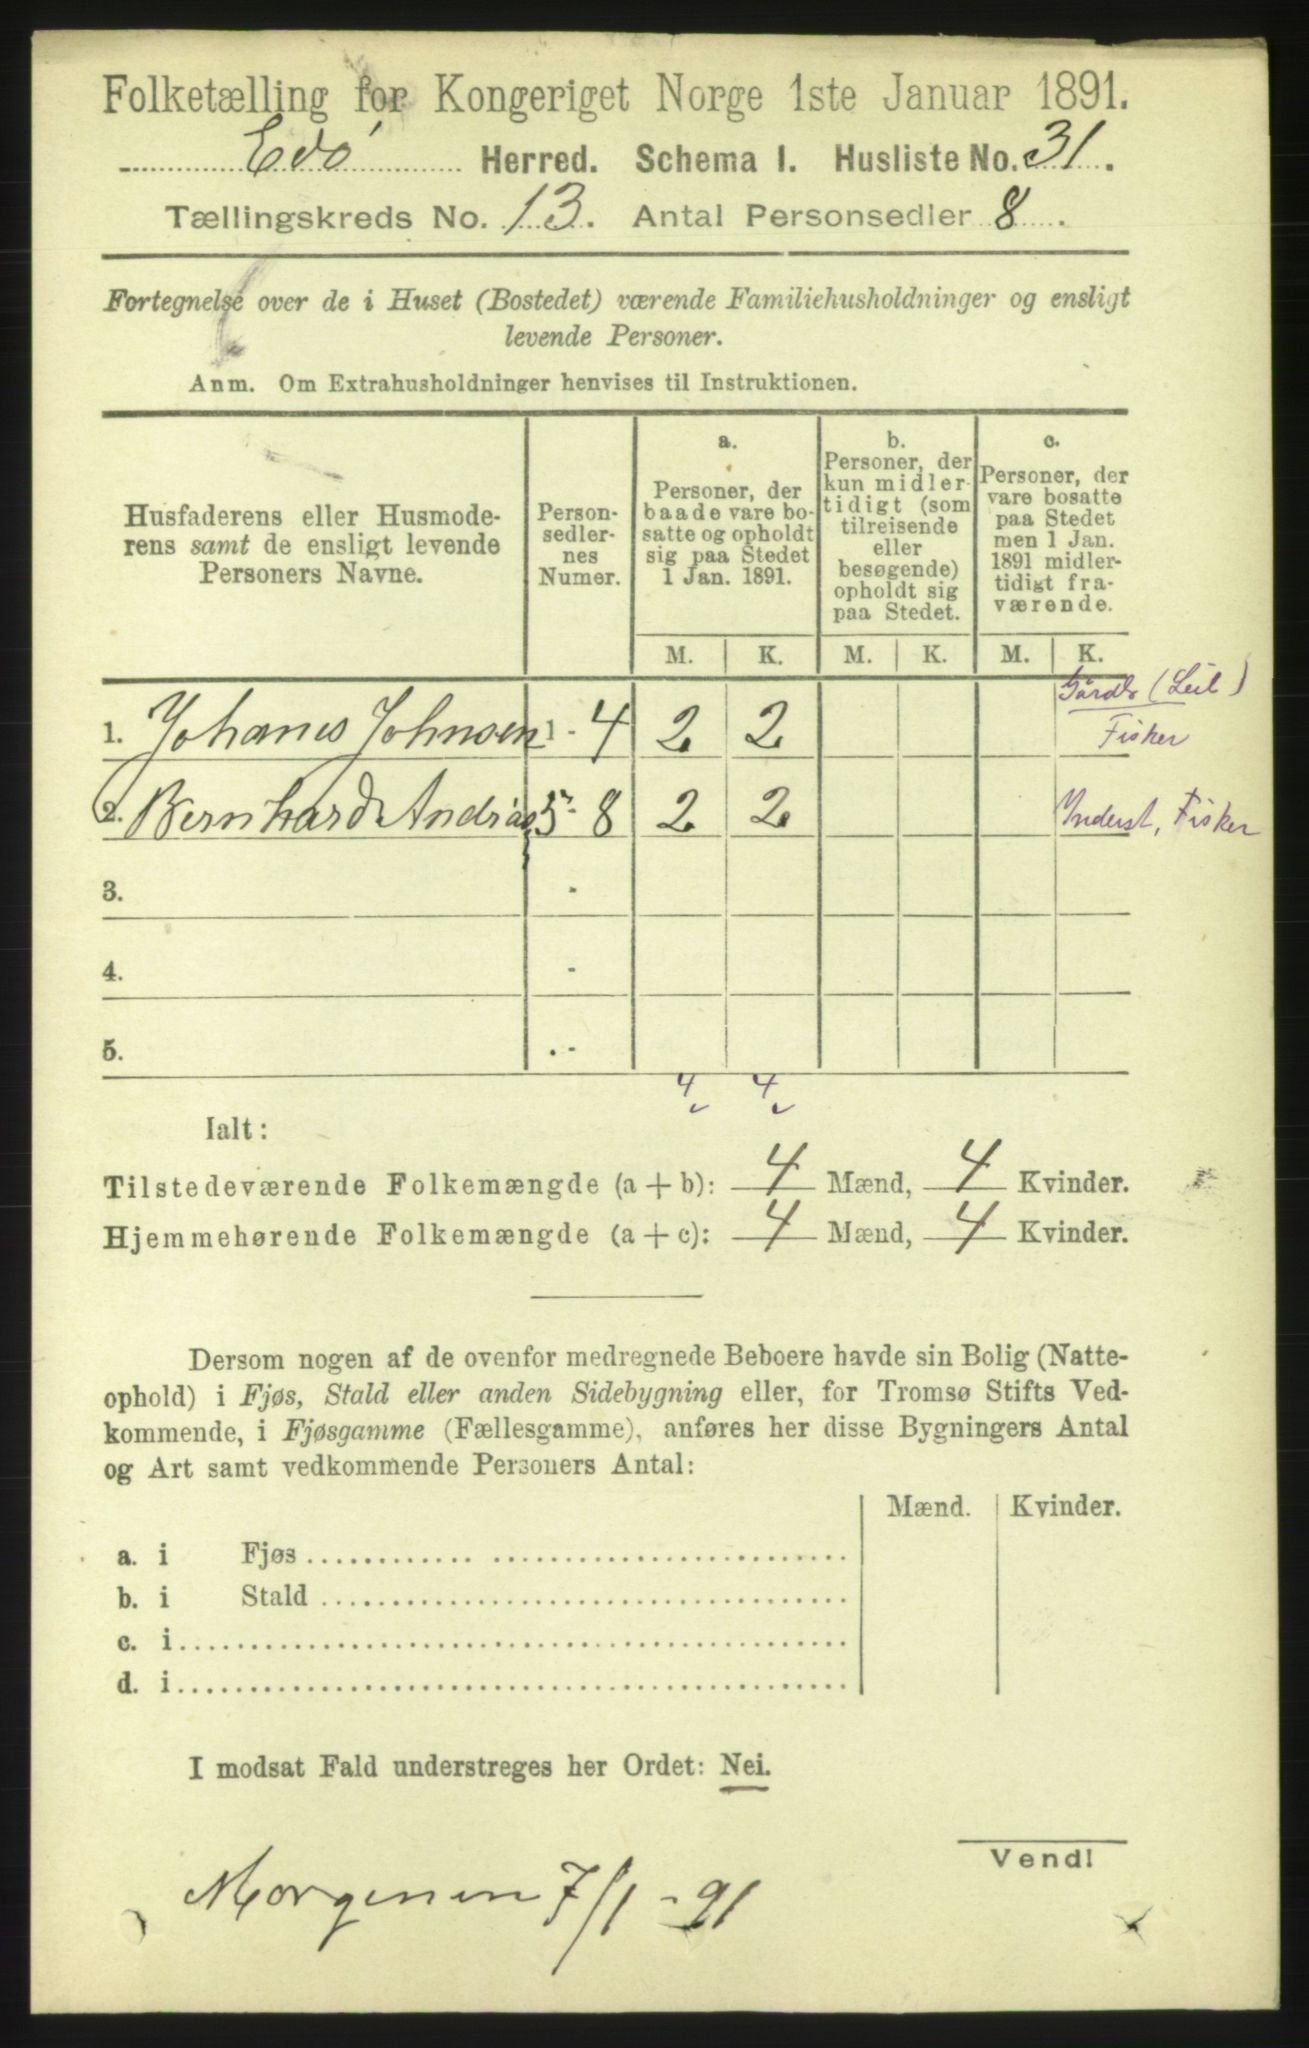 Folketælling for Kongeriget Norge 1ste Januar 1891.
Edö Herred. Schema I. Husliste No. 31.
Tællingskreds No. 13. Antal Personsedler 8.
Fortegnelse over de i Huset (Bostedet) værende Familiehusholdninger og ensligt
levende Personer.
Anm. Om Extrahusholdninger henvises til Instruktionen.
Husfaderens eller Husmode-
rens samt de ensligt levende
Personers Navne.
Person-
sedler-
nes
Numer.
a.
Personer, der
baade vare bo-
satte og opholdt
sig paa Stedet
1 Jan. 1891.
b.
Personer, der
kun midler-
tidigt (som
tilreisende
eller
besøgende)
opholdt sig
paa Stedet.
c.
Personer, der
vare bosatte
paa Stedet
men 1 Jan.
1891 midler-
tidigt fra-
værende.
M. K. M. K. M. K.
Gårdbr (Leil)
1. Johanes Johnsen 1 - 4 2 2 Fisker
2. Bernhard Andrias 5 - 8 2 2 Inderst, Fisker
3. -
4. -
5. . -
4 4
Ialt:
Tilstedeværende Folkemængde (a + b): 4 Mænd, 4 Kvinder.
Hjemmehørende Folkemængde (a + c): 4 Mænd, 4 Kvinder.
Dersom nogen af de ovenfor medregnede Beboere havde sin Bolig (Natte-
ophold) i Fjøs, Stald eller anden Sidebygning eller, for Tromsø Stifts Ved-
kommende, i Fjøsgamme (Fællesgamme), anføres her disse Bygningers Antal
og Art samt vedkommende Personers Antal:
Mænd. Kvinder.
a. i Fjøs
b. i Stald
c. i
d. i
I modsat Fald understreges her Ordet: Nei.
Vend!
7/1 - 91